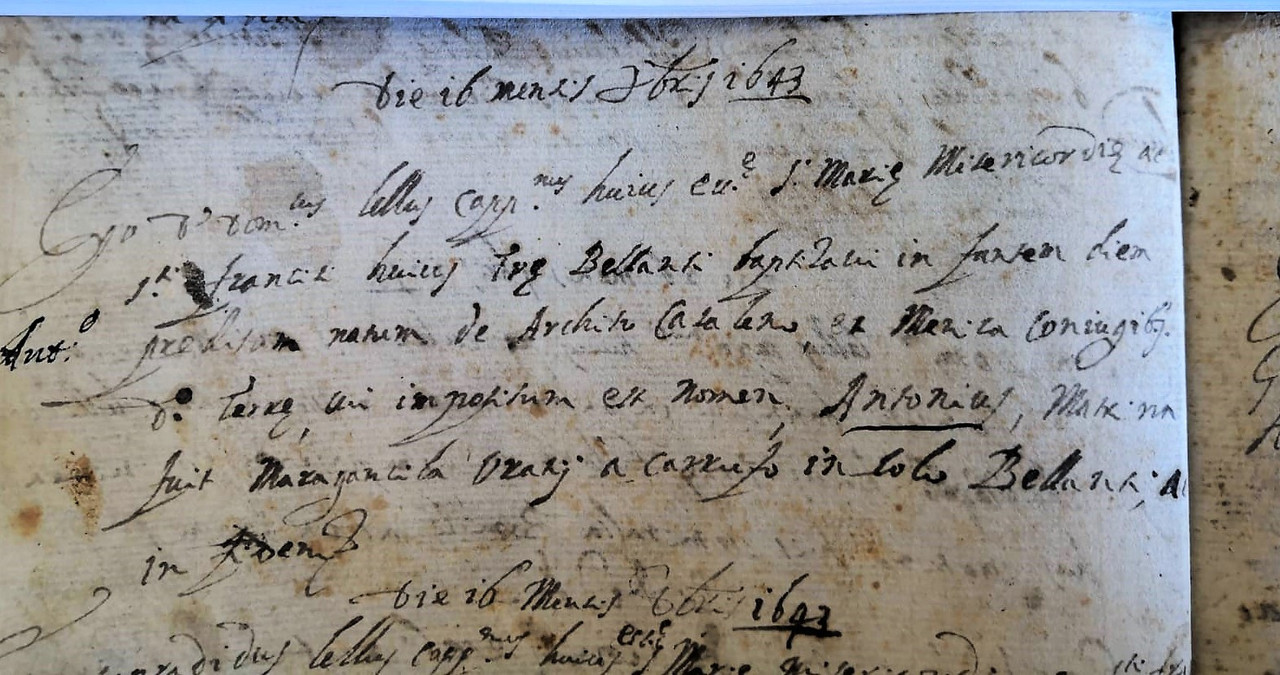 Die 16 mensis Xbris 1643
Ego D. Dom.cus lellus capp.nus huius eccl.e S. Marię Misericordię ac
S.ti francisci huius Trę Bellanti baptizavi infantem diem
Ant.o
natum de Archito Catalano et Marica coniugib.
d.ę Terrę, cui impositum est nomen, Antonius, Matrina
fuit Maragantula Oratij a carrufo incola Bellanti, ac
in
Die 16 Mensis Xbris 1643
lellus capp.nus huius eccl.ę S. Marię